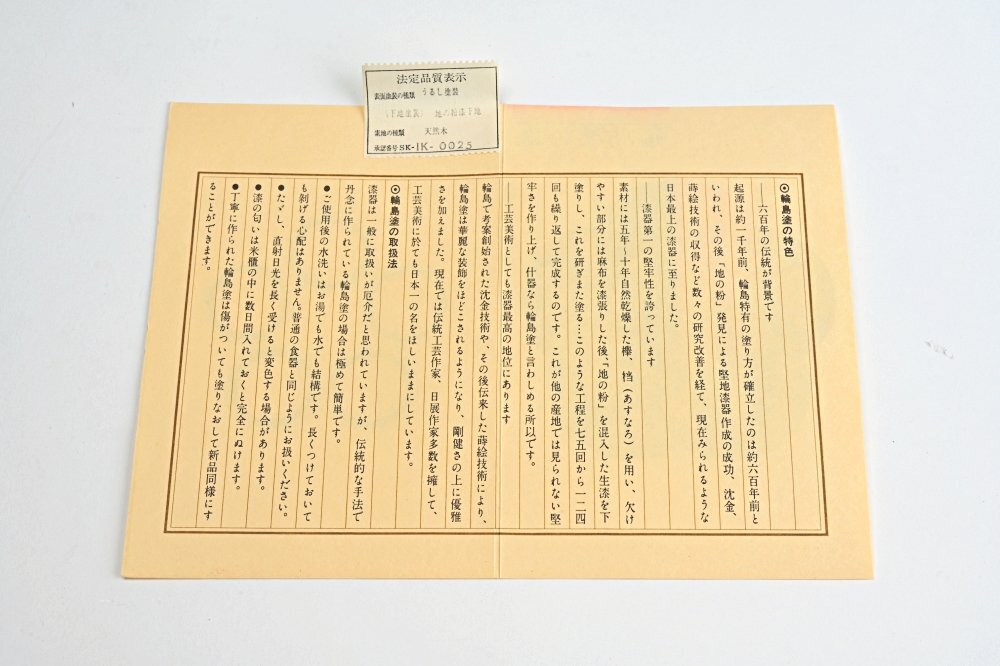 法定品質表示
表面塗装の種類 うるし塗装
(下地塗装) 地の粉漆下地
素地の種類 天然木
承認番号 SK-IK-0025
◎輪島塗の特色
――六百年の伝統が背景です
起源は約一千年前、輪島特有の塗り方が確立したのは約六百年前と
いわれ、その後「地の粉」発見による堅地漆器作成の成功、沈金、
蒔絵技術の収得など数々の研究改善を経て、現在みられるような
日本最上の漆器に至りました。
――漆器第一の堅牢性を誇っています
素材には五年〜十年自然乾燥した欅、档(あすなろ)を用い、欠け
やすい部分には麻布を漆張りした後、「地の粉」を混入した生漆を下
塗りし、これを研ぎまた塗る…このような工程を七五回から一二四
回も繰り返して完成するのです。これが他の産地では見られない堅
牢さを作り上げ、什器なら輪島塗と言わしめる所以です。
――工芸美術としても漆器最高の地位にあります
輪島で考案創始された沈金技術や、その後伝来した蒔絵技術により、
輪島塗は華麗な装飾をほどこされるようになり、剛健さの上に優雅
さを加えました。現在では伝統工芸作家、日展作家多数を擁して、
工芸美術に於ても日本一の名をほしいままにしています。
◎輪島塗の取扱法
漆器は一般に取扱いが厄介だと思われていますが、伝統的な手法で
丹念に作られている輪島塗の場合は極めて簡単です。
●ご使用後の水洗いはお湯でも水でも結構です。長くつけておいて
も剝げる心配はありません。普通の食器と同じようにお扱いください。
●ただし、直射日光を長く受けると変色する場合があります。
●漆の匂いは米櫃の中に数日間入れておくと完全にぬけます。
●丁寧に作られた輪島塗は傷がついても塗りなおして新品同様にす
ることができます。